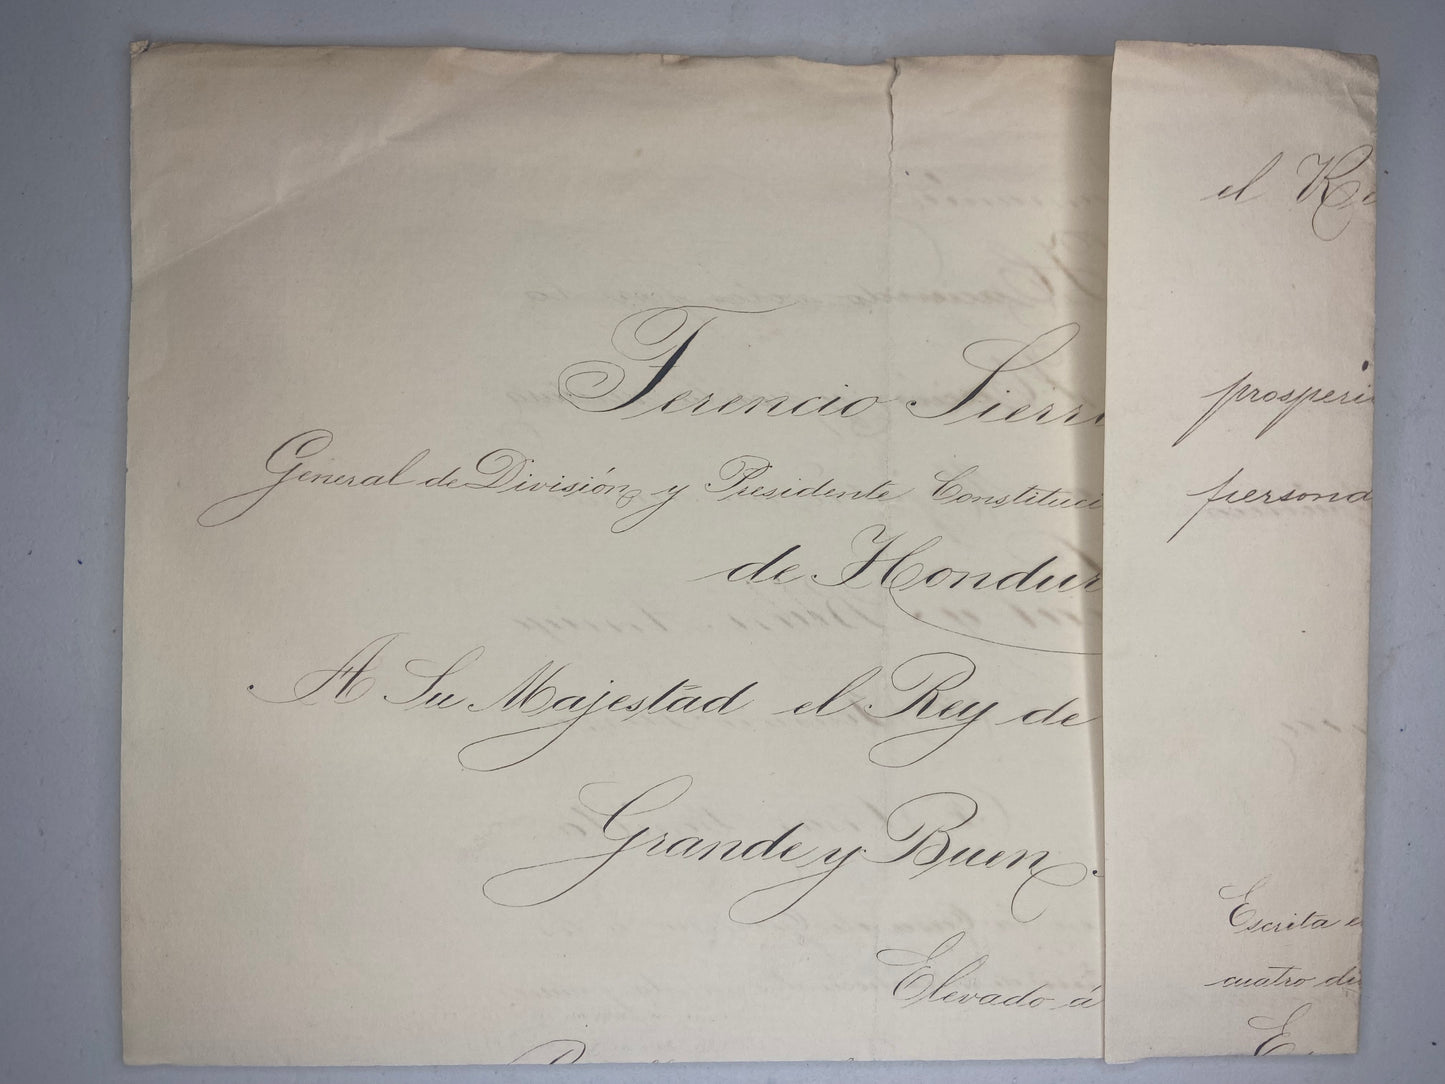 Terencio Sierr
General de División, y Presidente Constituci
de Hondur
A Su Majestad el Rey de
Grande y Buen
Elevado á
el Re
prosperi
persona
Escrita e
cuatro di